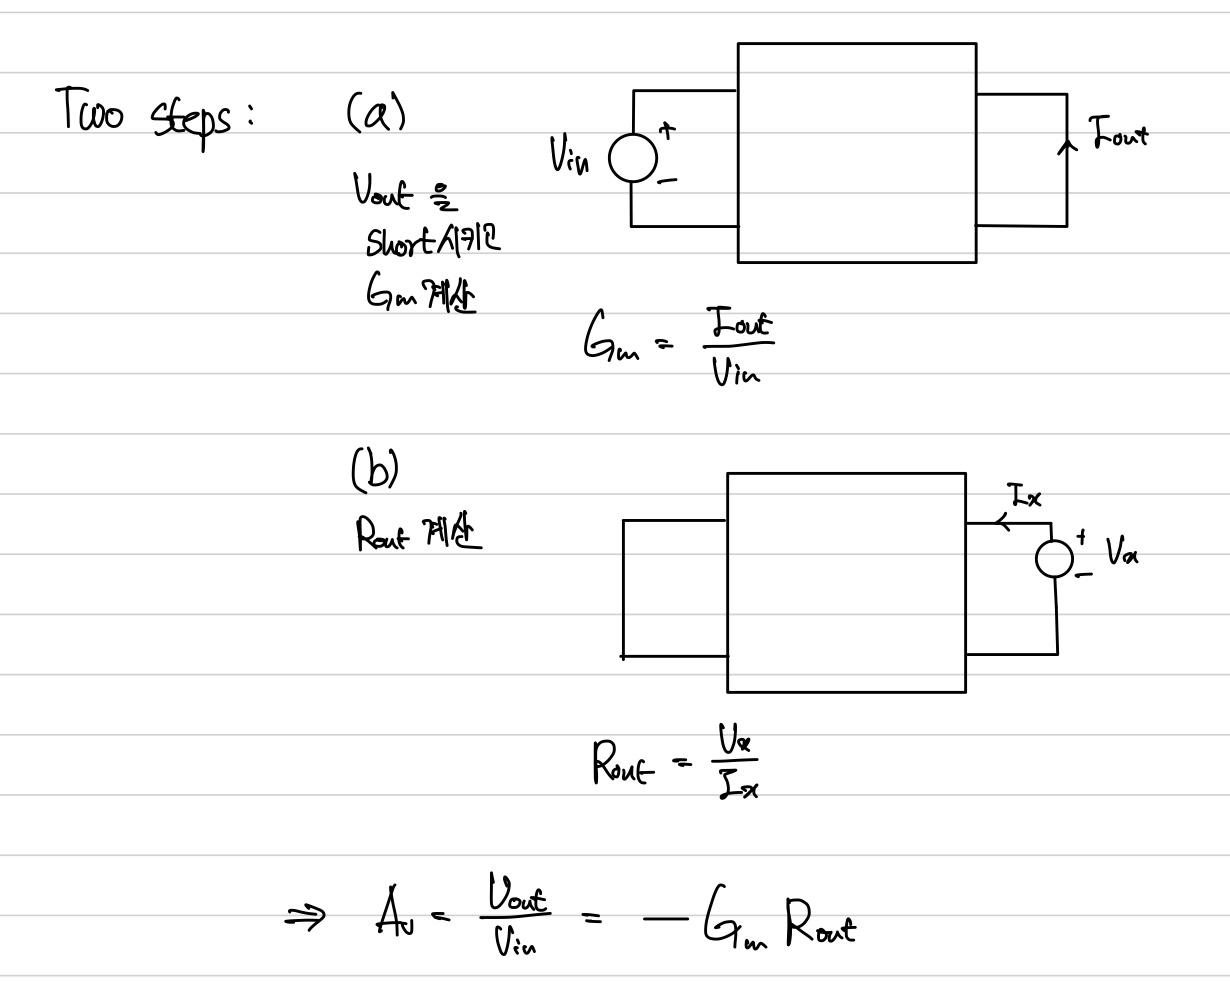 Two steps: (a)
Vin + − Iout
Vout 을
short 시키고
Gm 계산
Gm = Iout / Vin
(b)
Rout 계산
Ix
+ − Vx
Rout = Vx / Ix
⇒ Av = Vout / Vin = − Gm Rout